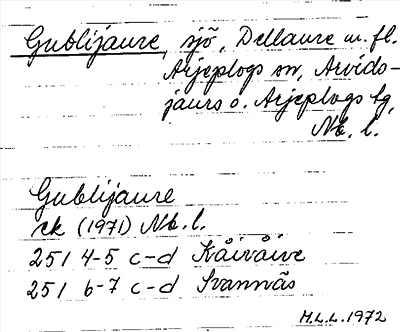 Gublijaure, sjö, Dellaure m. fl.
Arjeplogs sn, Arvids-
jaurs o. Arjeplogs tg,
Nb. l.
Gublijaure
ek (1971) Nb. l.
251 4-5 c-d Kåivåive
251 6-7 c-d Svannäs
H.L.L. 1972